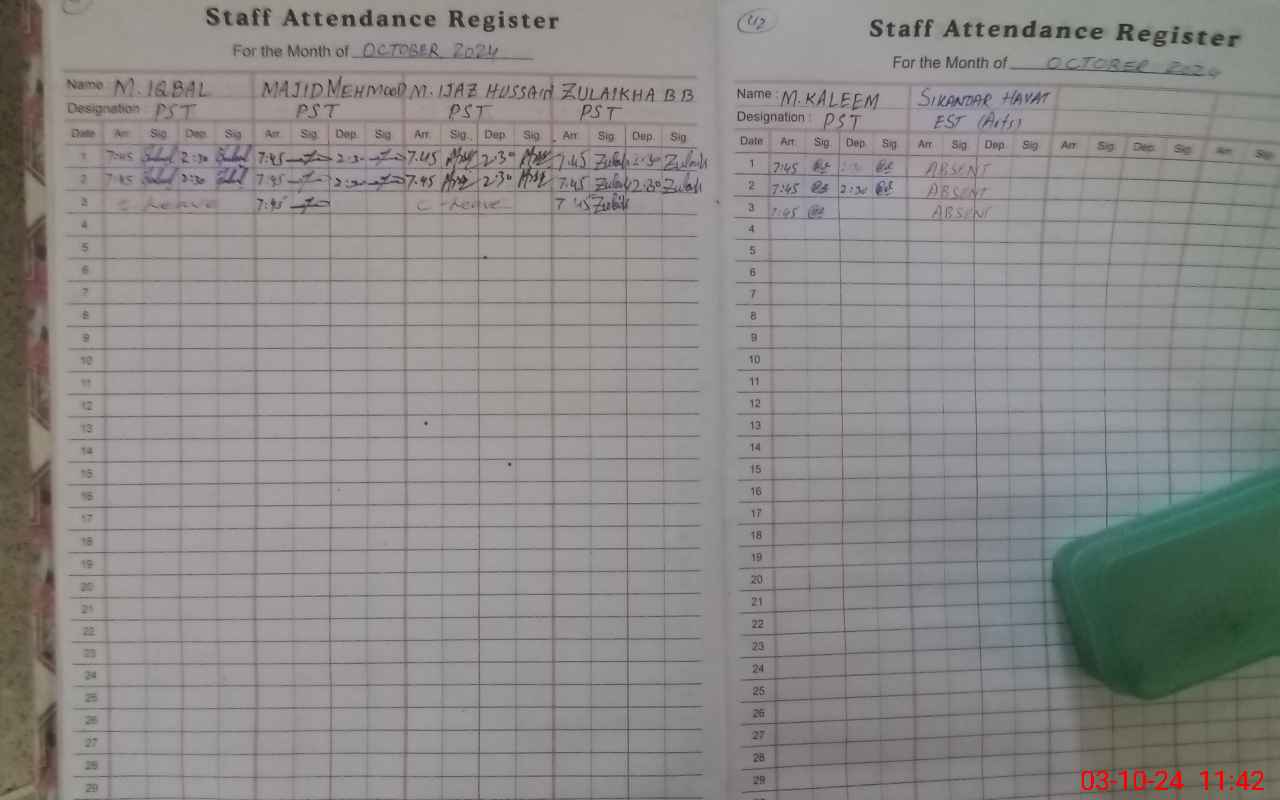 Staff Attendance Register
For the Month of OCTOBER 2024
Name M. IQBAL MAJID MEHMOOD M. IJAZ HUSSAIN ZULAIKHA BB
Designation : PST PST PST PST
Date Arr. Sig. Dep. Sig. Arr. Sig. Dep. Sig. Arr. Sig. Dep. Sig. Arr. Sig. Dep. Sig.
1 7:45 2:30 7:45 2:30 7.45 2:30 7.45 2:30
2 7:45 2:30 7:45 2:30 7.45 2:30 7.45 2:30
3 C Leave 7:45 C-Leave 7 45
4
5
6
7
8
9
10
11
12
13
14
15
16
17
18
19
20
21
22
23
24
25
26
27
28
29
42
Staff Attendance Register
For the Month of OCTOBER 2024
Name : M. KALEEM SIKANDAR HAYAT
Designation : PST EST (Arts)
Date Arr. Sig. Dep. Sig. Arr. Sig. Dep. Sig. Arr. Sig. Dep. Sig. Arr. Sig.
1 7:45 ABSENT
2 7:45 2:30 ABSENT
3 7:45 ABSENT
4
5
6
7
8
9
10
11
12
13
14
15
16
17
18
19
20
21
22
23
24
25
26
27
28
29
03-10-24 11:42